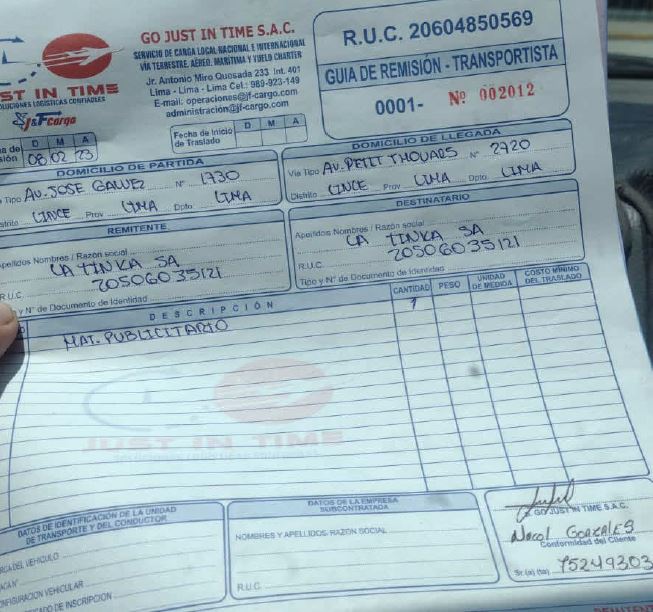 GO JUST IN TIME S.A.C.
SERVICIO DE CARGA LOCAL NACIONAL E INTERNACIONAL
VIA TERRESTRE, AÉREO, MARÍTIMA Y VUELO CHARTER
Jr. Antonio Miro Quesada 233 Int. 401
Lima - Lima - Lima Cel.: 989-923-149
E-mail: operaciones@jf-cargo.com
administración@jf-cargo.com
ST IN TIME
OLUCIONES LOGISTICAS CONFIABLES
J&Fcargo
R.U.C. 20604850569
GUIA DE REMISIÓN - TRANSPORTISTA
0001- Nº 002012
D M A
08 02 23
Fecha de Inicio de Traslado D M A
DOMICILIO DE PARTIDA
Tipo AV. JOSE GALVEZ Nº 1730
LINCE Prov LIMA Dpto LIMA
DOMICILIO DE LLEGADA
Vía Tipo AV. PETIT THOUARS Nº 2720
Distrito LINCE Prov LIMA Dpto LIMA
REMITENTE
Apellidos Nombres / Razón social
LA TINKA SA
R.U.C. 20506035121
y N° de Documento de Identidad
DESTINATARIO
Apellidos Nombres / Razón social
LA TINKA SA
R.U.C. 20506035121
Tipo y N° de Documento de Identidad
DESCRIPCIÓN CANTIDAD PESO UNIDAD DE MEDIDA COSTO MINIMO DEL TRASLADO
MAT. PUBLICITARIO 1
JUST IN TIME
DATOS DE IDENTIFICACIÓN DE LA UNIDAD
DE TRANSPORTE Y DEL CONDUCTOR
DEL VEHICULO
CONFIGURACION VEHICULAR
DE INSCRIPCION
DATOS DE LA EMPRESA
SUBCONTRATADA
NOMBRES Y APELLIDOS: RAZÓN SOCIAL
R.U.C.
GO JUST IN TIME S.A.C.
Nacol Gonzales
Conformidad del Cliente
Sr. (a) (ta) 75249303